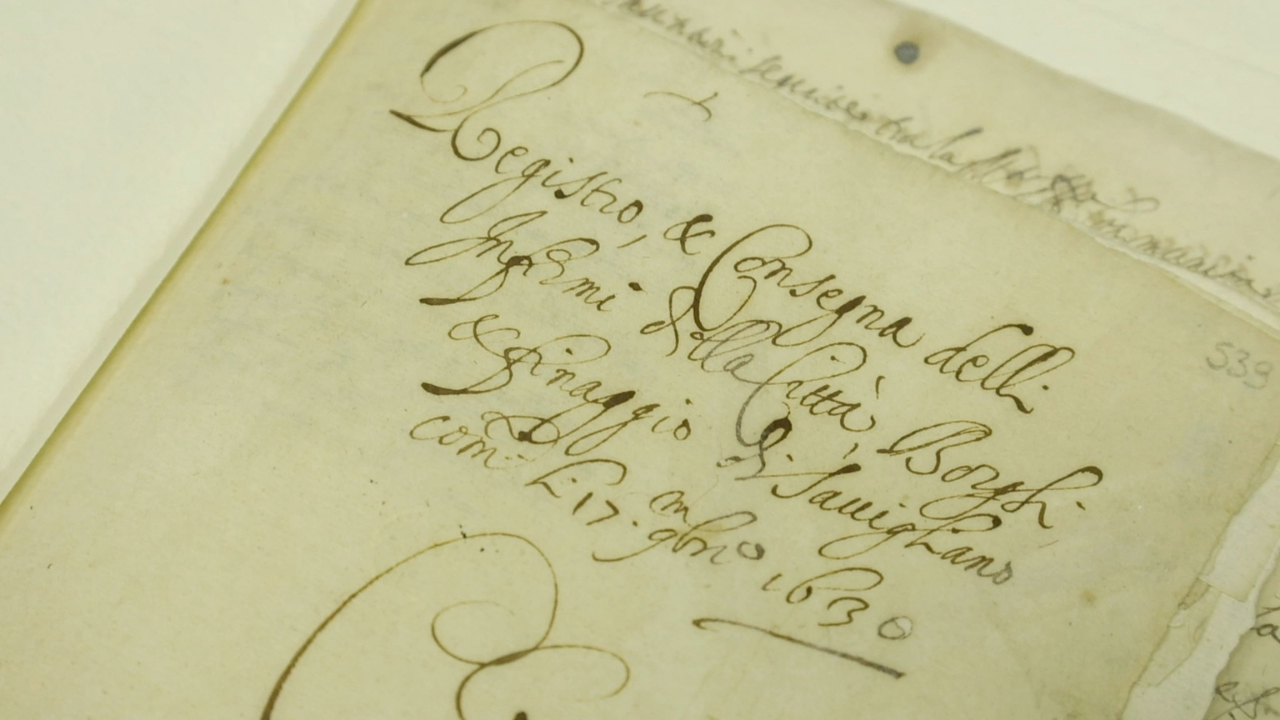 Registro, & Consegna delli
Infermi della Città, Borghi
& finaggio di Savigliano
com. li 17. 9bre 1630
539